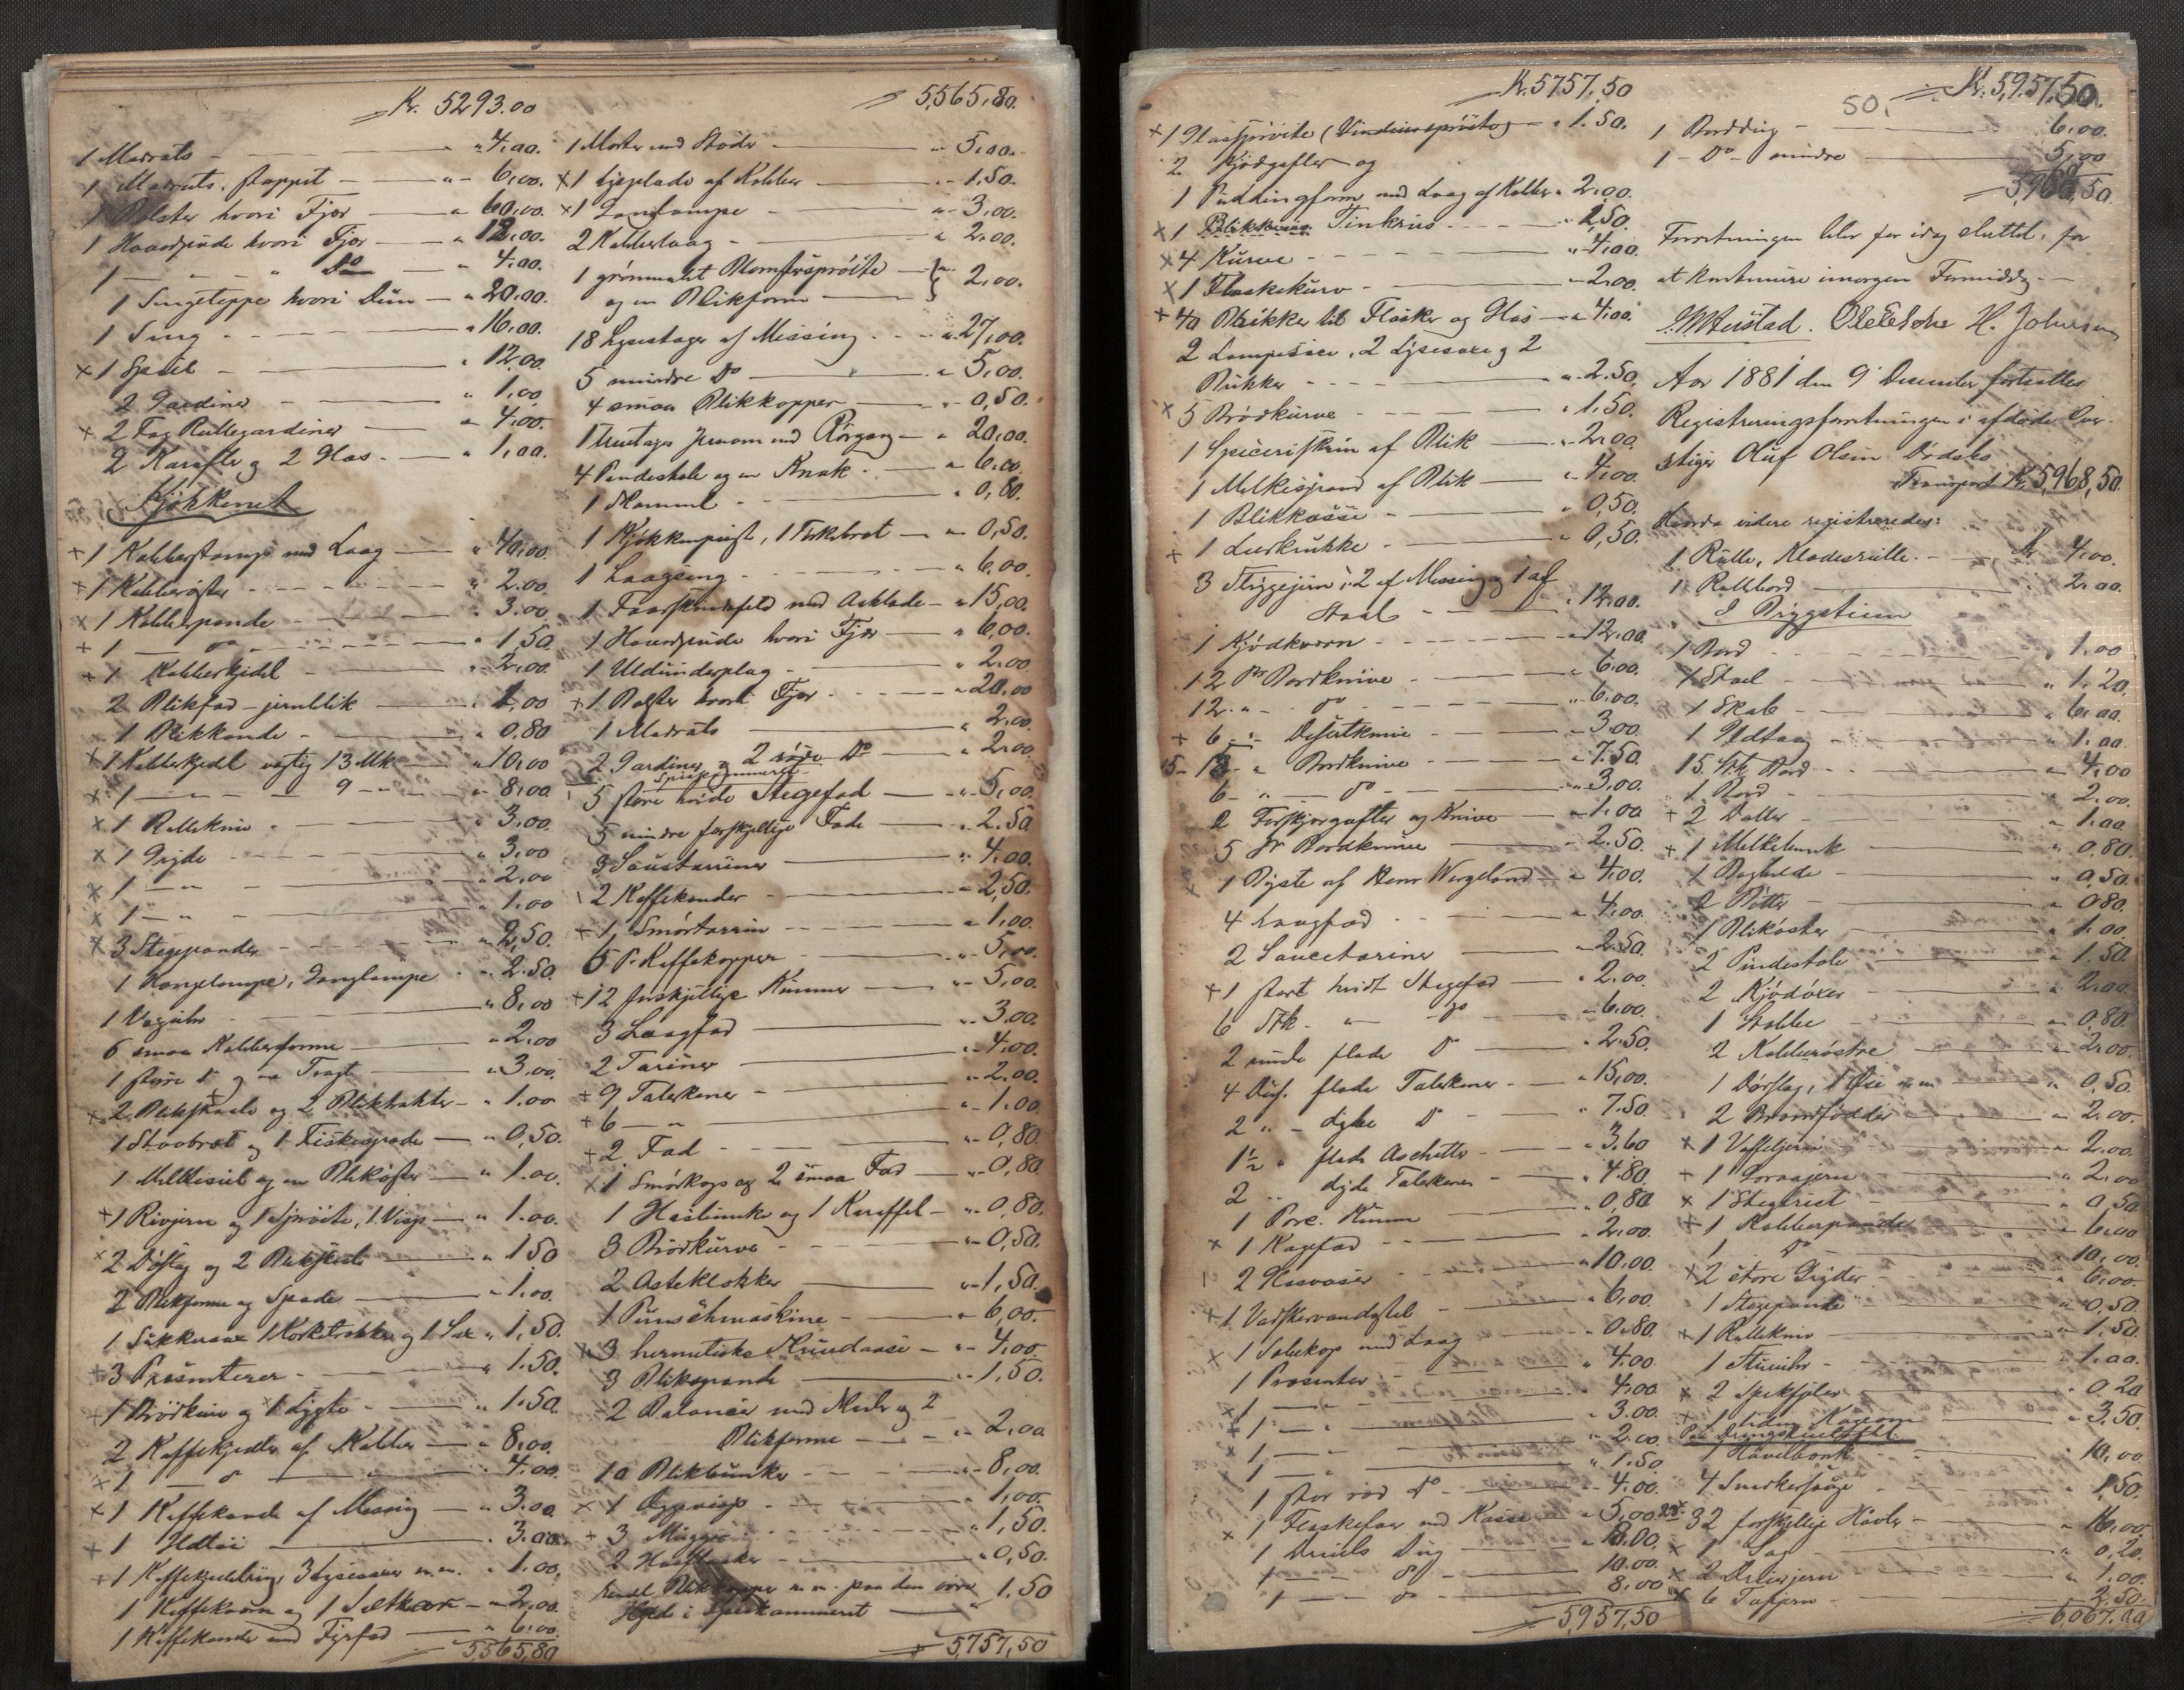 Kr. 5293.00
1 Madrats - " 4,00.
1 Madrats, stoppet - " 6,00.
1 Bolster hvori Fjør - " 60,00.
1 Hovedpude hvori Fjør - " 12,00.
1 - " - Do - " 4,00.
1 Sengeteppe hvori Dun - " 20,00.
1 Seng - " 16,00.
x 1 Speil - " 12,00
2 Gardiner - " 1,00
x 2 Fag Rullegardiner - " 4,00.
2 Karafler og 2 Glas - " 1,00.
Kjøkkenet
+ 1 Kobberstamp med Laag - " 40,00
+ 1 Kobberøster - " 2.00
x 1 Kobberpande - " 3.00
+ 1 - do - " 1,50
+ 1 Kobberkjedel - " 2.00
2 Blikfad - jernblik - " 1,00
1 Blikkande - " 0,80
x 1 Kobberkjedel vægtig 13 Mk " 10,00
x 1 - " - 9 - " - " 8,00
x 1 Rullekniv - " 3.00
x 1 Gryde - " 3,00
x 1 - " - " 2,00
x 1 - " - " 1.00
x 3 Stegepander - " 2,50.
1 Hængelampe, Ganglampe - " 2.50
1 Væguhr - " 8,00
6 smaa Kobberforme - " 2,00
1 større do og en Tragt - " 3,00.
x 2 Blikskaale og 2 Bliktrakter - " 1.00
1 Stovbræt og 1 Fiskespade - " 0,50.
1 Melkesiel og en Blikøster - " 1.00.
+ 1 Rivjern og 1 Sprøite, 1 Visp - " 1.00.
x 2 Dørslag og 2 Blikskeer - " 1 50
2 Blikforme og Spade - " 1.00.
1 Sukkersax 1 Korketrækker og 1 Sax " 1,50.
+ 3 Præsenterer - " 1.50.
+ 1 Brødkniv og 1 Lygte - " 1.50
2 Kaffekjedler af Kobber - " 8,00.
+ 1 - do - " 4,00
x 1 Kaffekande af Messing - " 3.00
+ 1 Ildtøi - " 3.00
+ 1 Kaffekjedelring, 3 Lysesaxer m.m. " 1.00,
1 Kaffekværn og 1 Saltkar - " 2,00.
1 Kaffekande med Fyrfad - " 6.00
5,565,80
5,565,80.
1 Morter med Støder - " 5,00.
x 1 Lyseplade af Kobber - " 1.50.
x 1 Lampe - " 3,00.
2 Kobberlaag - " 2,00.
1 grønmalet Blomstersprøite
og en Blikform - } " 2,00.
18 Lysestager af Messing - " 27,00.
5 mindre Do - " 5,00.
4 smaa Blikkopper - " 0,50.
1 Jernovn med Rørgang - " 20,00.
4 Pindestole og en Krak - " 6,00.
1 Skammel - " 0,80.
1 Kjøkkenpust, 1 Fiskebræt - " 0,50.
1 Laagseng - " 6,00.
1 Faarskindsfeld med Aaklæde - " 15,00.
1 Hovedpude hvori Fjær - " 6,00.
1 Uldunderplag - " 2.00
+ 1 Bolster hvori Fjær - " 20,00
1 Madrats - " 2,00
2 Gardiner og 2 røde Do - " 2,00
Spisekammeret
5 store hvide Stegefad - " 5,00.
5 mindre forskjellige Fade - " 2.50
3 Sausterriner - " 4,00.
2 Kaffekander - " 2,50.
+ 1 Smørterrin - " 1,00.
6 P. Kaffekopper - " 5,00.
+ 12 forskjellige Kummer - " 5,00.
3 Laagfad - " 3.00.
2 Tariner - " 4,00.
+ 9 Talerkener - " 2,00.
+ 6 - " - " 1,00.
+ 2 Fad - " 0,80.
x 1 Smørkop og 2 smaa Fad - " 0,80
1 Glasbunke og 1 Karaffel - " 0,80.
3 Brødkurve - " 0,50.
2 Osteklokker - " 1,50.
1 Punschmaskine - " 6,00.
x 3 hermetiske Krukdaase - " 4,00.
3 Blikspande - " 1,50.
2 Balancer med Skaaler og 2
Blikforme - " 2,00
10 Blikbunker - " 8,00.
x 1 Eggvisp - " 1,00.
+ 3 Mugger - " 1,50.
2 Glasflasker - " 0,50.
Endel Blikkopper m.m. paa den øvre
Hylde i Spisekammeret - " 1,50
5,757,50
Kr. 5757,50
x 1 Glassprøite (Vinduessprøite) - " 1.50.
2 Kjødgafler og
1 Puddingform med Laag af Kobber " 2,00.
x 1 Tinkrus - " 2,50.
x 4 Kurve - " 4,00.
x 1 Flaskekurv - " 2,00.
+ 40 Brikker til Flasker og Glas - " 4,00.
2 Lampesaxe, 2 Lysesaxe og 2
Brikker - " 2.50.
x 5 Brødkurve - " 1.50.
1 Speceriskrin af Blik - " 2,00
1 Melkespand af Blik - " 4,00
1 Blikkasse - " 0,50.
+ 1 Leerkrukke - " 0,50.
3 Strygejern: 2 af Messing og 1 af
Staal - " 12,00.
1 Kjødkværn - " 12,00
12 Par Bordknive - " 6.00.
12 " - do - " 6.00.
+ 6 - " Desertknive - " 3,00
15 - 18 - " Bordknive - " 7.50.
6 - " - do - " 3,00.
2 Forskjærgafler og Knive - " 1,00
5 pr Bordknive - " 2.50.
1 Byste af Henr Wergeland - " 4,00.
4 Laagfad - " 4.00.
2 Saucetariner - " 2.50.
+ 1 stort hvidt Stegefad - " 2.00.
6 Stk. - " - do - " 6,00.
2 runde flade Do - " 2.50.
4 Dus. flade Talerkener - " 15,00.
2 " - dybe Do - " 7.50.
1½ " flade Aschetter - " 3,60
2 " dybe Talerkener - " 4.80.
1 Porc. Kumme - " 0,80
x 1 Kagefad - " 2,00.
2 Glasvaser - " 10.00
+ 1 Vaskevandstel - " 6,00.
x 1 Salvekop med Laag - " 0.80.
1 Præsenter - " 4.00
x 1 - " - " 4,00
x 1 - " - " 3.00.
1 - " - " 2,00.
1 - " - " 1.50
1 stor rød Do - " 4.00.
x 1 Flaskefoer med Kasse - " 5,00
1 Dreiels Dug - " 8,00.
1 - do - " 10.00.
1 - do - " 8,00
5957,50
50.
Kr. 5,957,50.
1 Borddug - 6,00.
1 - Do - mindre - 5,00
5,968,50.
Forretningen blev for idag sluttet, for
at kontinuere imorgen Formiddag -
H. Johnsen
Aar 1881 den 9 December fortsattes
Registreringsforretningen i afdøde Over-
stiger Oluf Olsen Dødsbo
Transport Kr. 5,968,50.
Hvorda videre registreredes:
1 Rulle, Klædesrulle - Kr. 4,00.
1 Rullebord - " 2,00.
I Bryggestuen
1 Bord - " 1.00
1 Stoel - " 1,20.
1 Skab - " 6,00.
1 Ildtang - " 1,00.
15 Stk Bord - " 4,00
1 Bord - " 2,00.
+ 2 Baller - " 1,00.
+ 1 Melkebunk - " 0,80.
1 Bagfjede - " 0,50.
2 Bøtter - " 0,80.
1 Blikøster - " 1.00.
2 Pindestole - " 1.50.
2 Kjødøxer - " 2,00.
1 Stabbe - " 0,80.
2 Kobberøstre - " 2,00.
1 Dørslag, 1 Øse m.m - " 0,50.
2 Brændfødder - " 2,00.
x 1 Vaffeljern - " 2,00.
+ 1 Goraajern - " 2,00
x 1 Stegerist - " 0,50
+ 1 Kobberpande - " 6,00
1 - Do - " 10,00.
x 2 store Gryder - " 6,00.
1 Stegepande - " 0,50.
+ 1 Rullekniv - " 1,50.
1 Stueuhr - " 1,00.
x 2 Spekfjeler - " 0,20
x 1 liden Kagerom - " 3,50.
Paa Drengestueloftet.
1 Høvelbænk - " 10,00
4 Snedkersage - " 1,50.
32 forskjellige Høvler - " 16,00.
x 1 Sag - " 0,20.
x 2 Dreiejern - " 1,00.
x 6 Tappern - " 2,50.
6,067,00